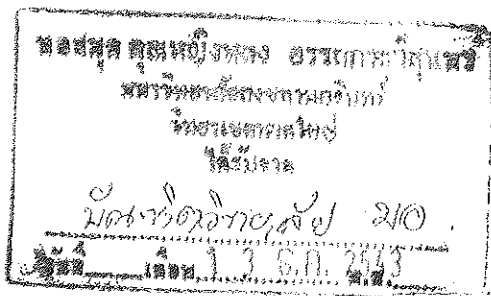 หอสมุด คุณหญิงหลง อรรถกระวีสุนทร
มหาวิทยาลัยสงขลานครินทร์
วิทยาเขตหาดใหญ่
ได้รับจาก
บัณฑิตวิทยาลัย มอ.
วันที่ เดือน 13 ธ.ค. 2543